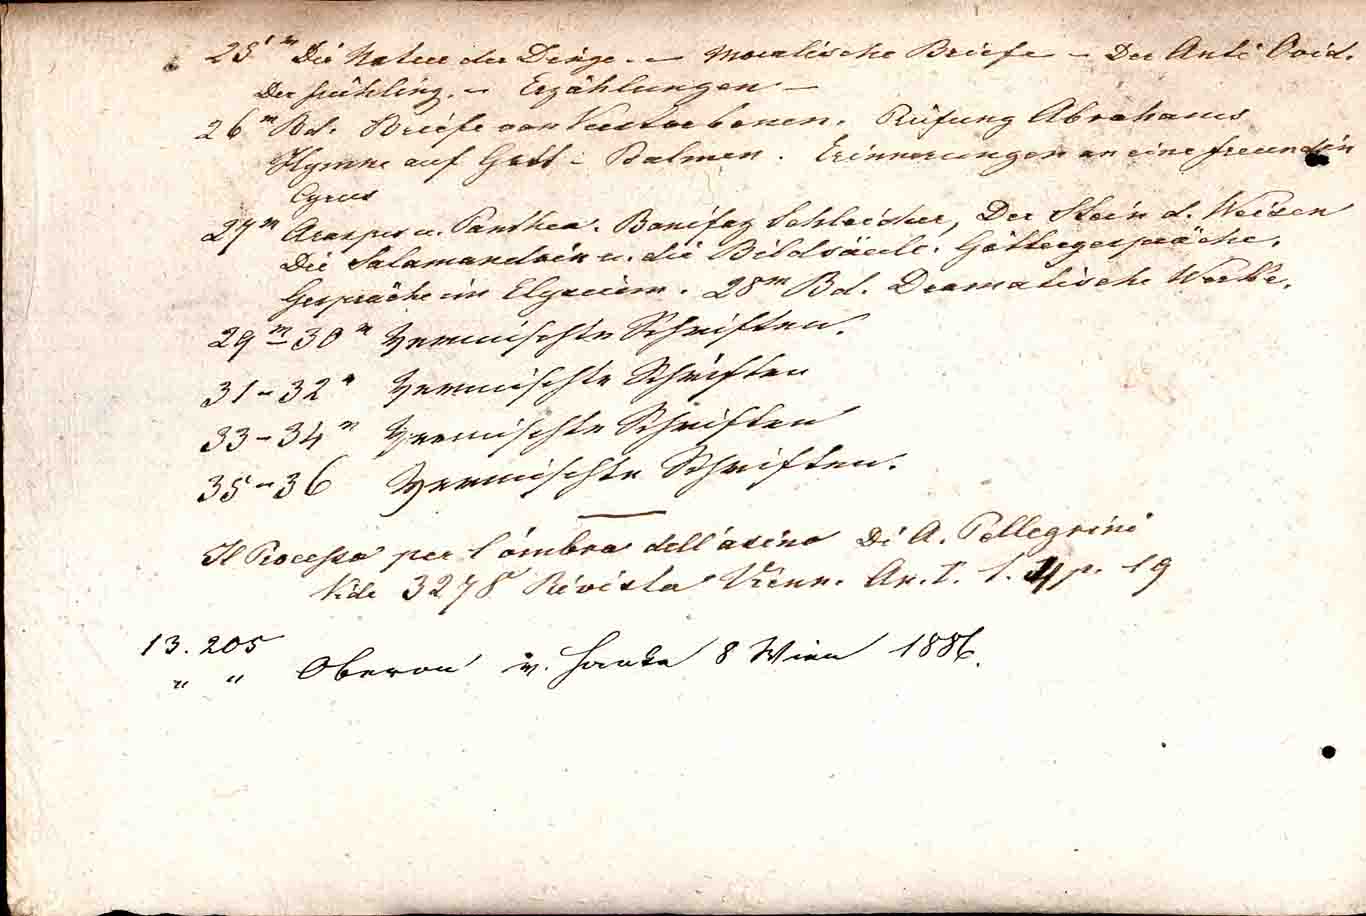 25.n Die Natur der Dinge. – Moralische Briefe – Der Anti Ovid.
Der Frühling. – Erzählungen –
26n Bd. Briefe von Verstorbenen. Prüfung Abrahams
Hymne auf Gott – Psalmen. Erinnerungen an eine Freundin
Cyrus
27n Araspes u. Panthea. Bonifaz Schleicher, Der Stein d. Weisen
Die Salamandrin u. die Bildsäule. Göttergespräche.
Gespräche im Elysium. 28n Bd. Dramatische Werke.
29n–30n Vermischte Schriften.
31–32n Vermischte Schriften
33–34n Vermischte Schriften
35–36 Vermischte Schriften.
Il Processo per l'ombra dell'asino Di A. Pellegrini
Vide 3278 Rivista Vienn. An. I. t. 4 p. 19
13.205
" " Oberon v. 8 Wien 1886.